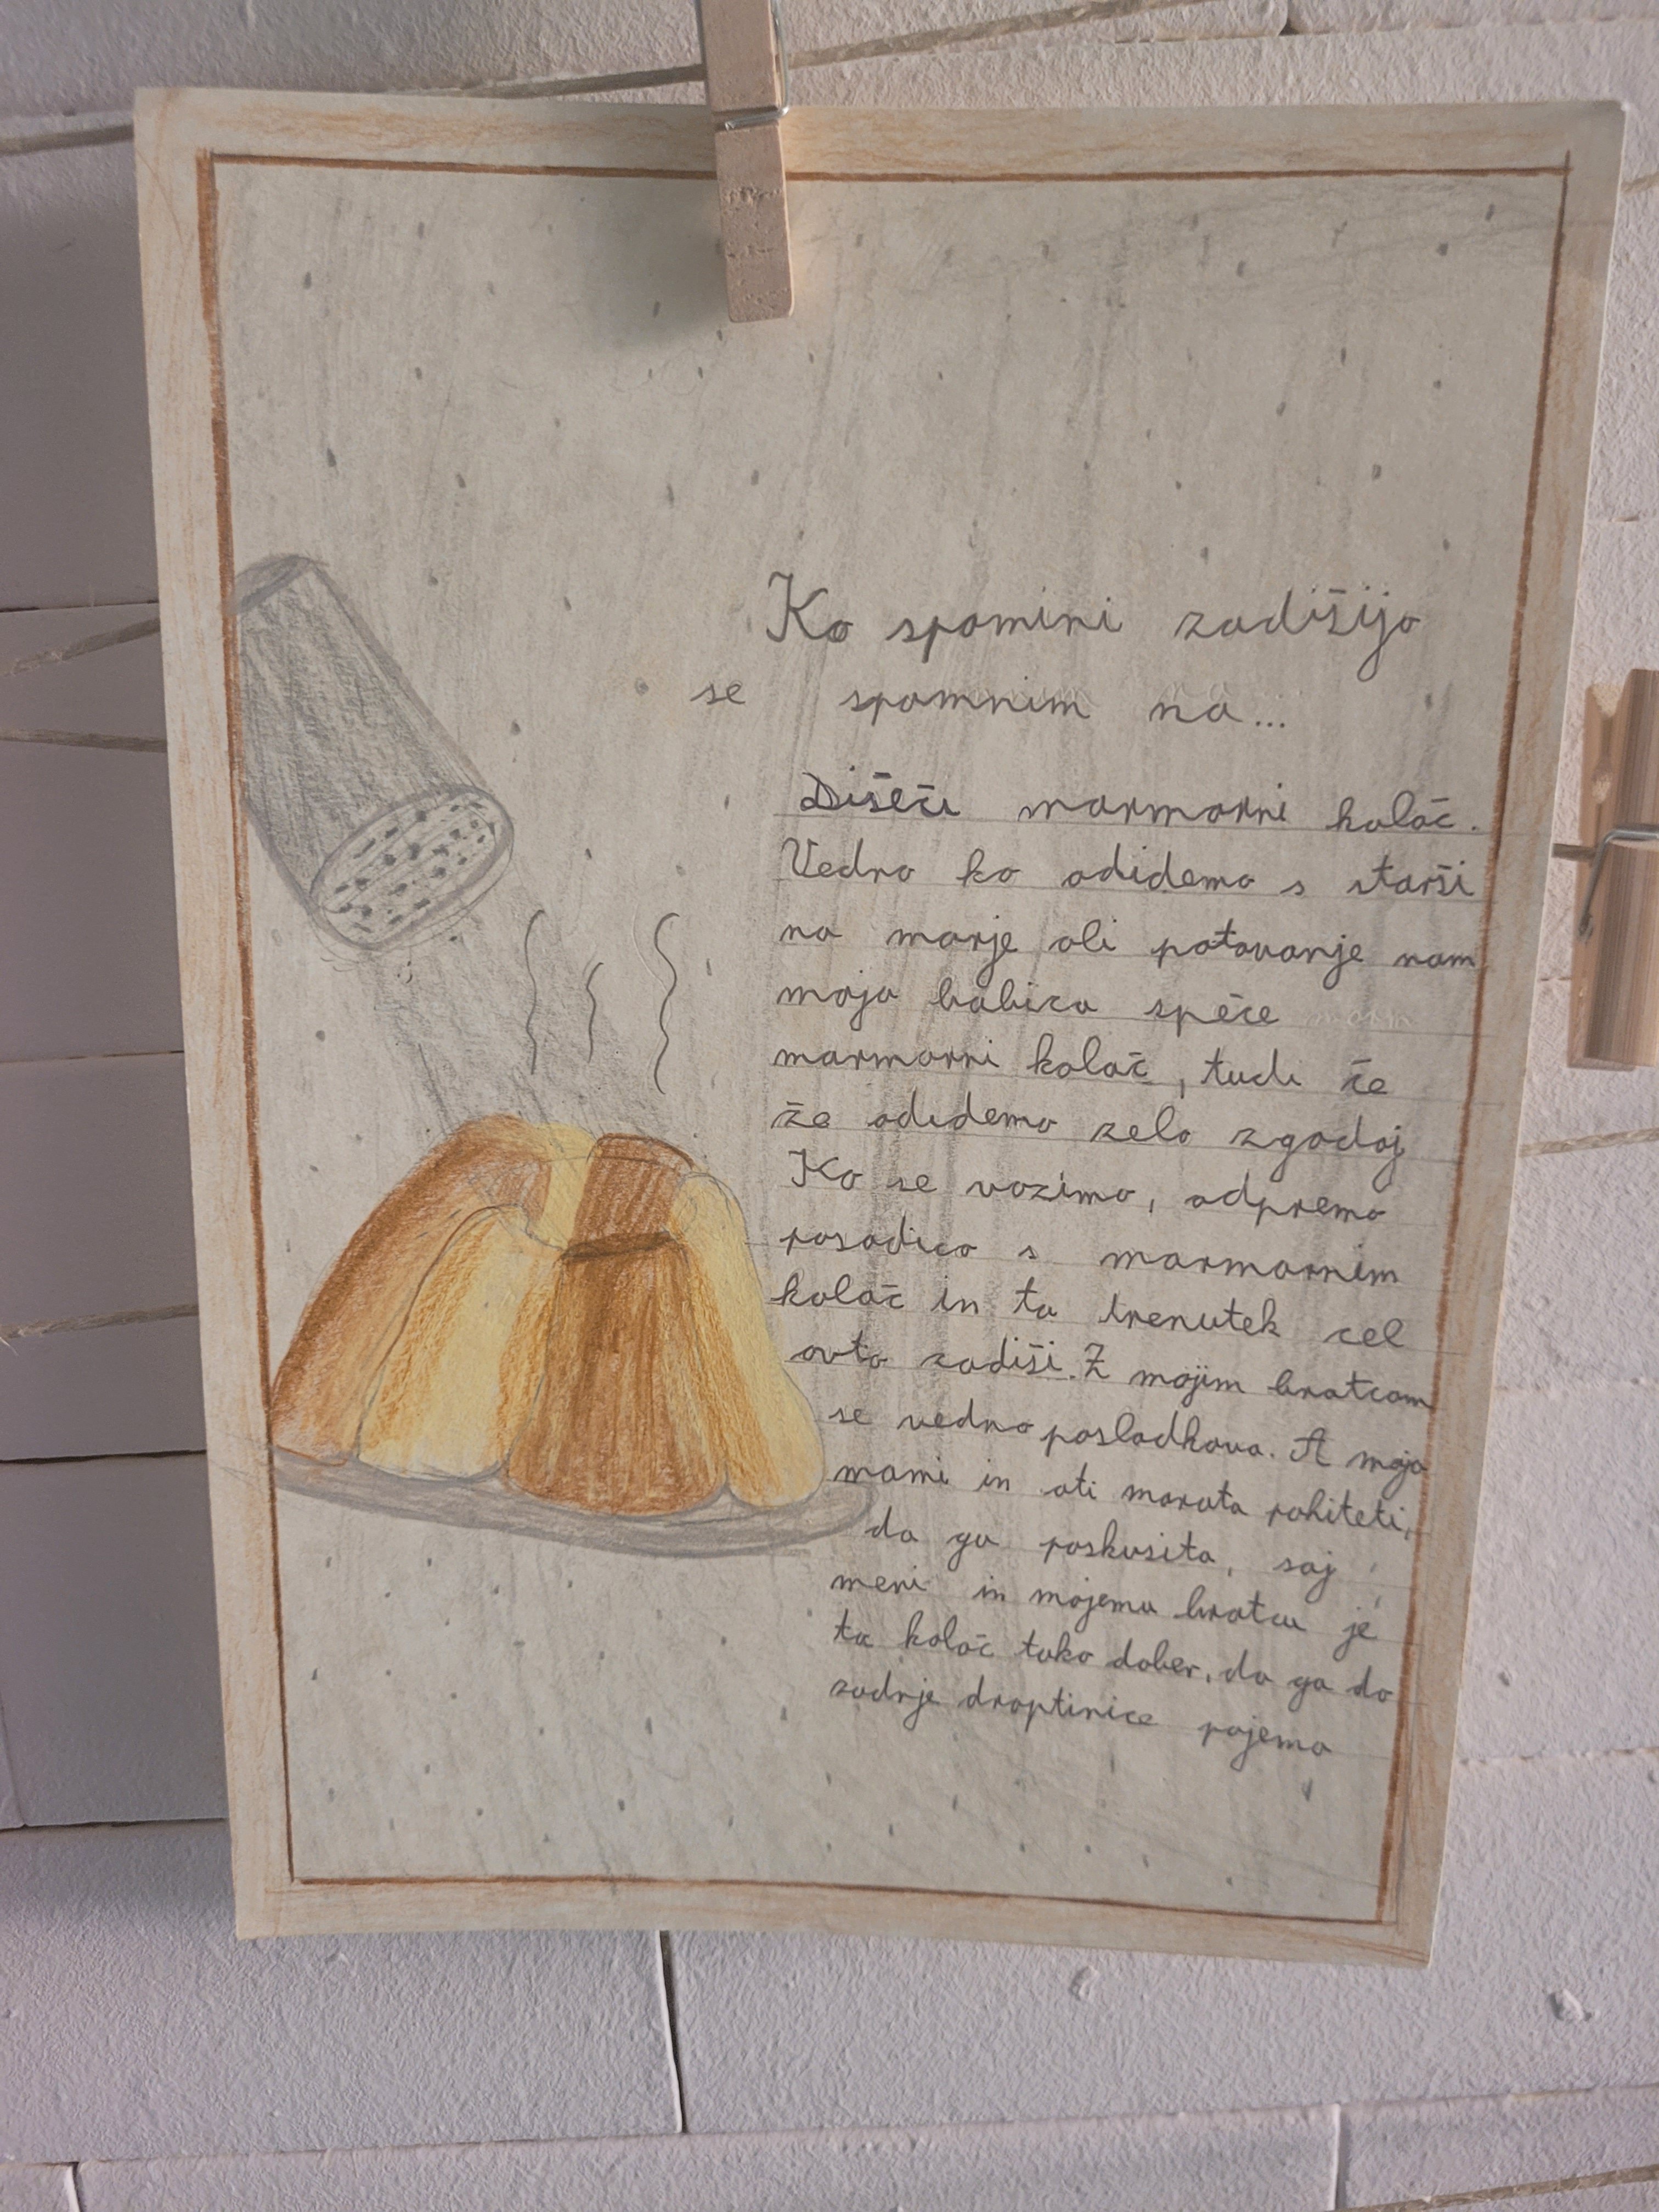 Ko spomini zadišijo
se spomnim na...
Dišeči marmorni kolač.
Vedno ko odidemo s starši
na morje ali potovanje nam
moja babica speče
marmorni kolač, tudi če
že odidemo zelo zgodaj
Ko se vozimo, odpremo
posodico s marmornim
kolač in ta trenutek cel
avto zadiši. Z mojim bratcom
se vedno posladkava. A moja
mami in ati morata pohiteti,
da ga poskusita, saj
meni in mojemu bratcu je
ta kolač tako dober, da ga do
zadnje droptinice pojemo